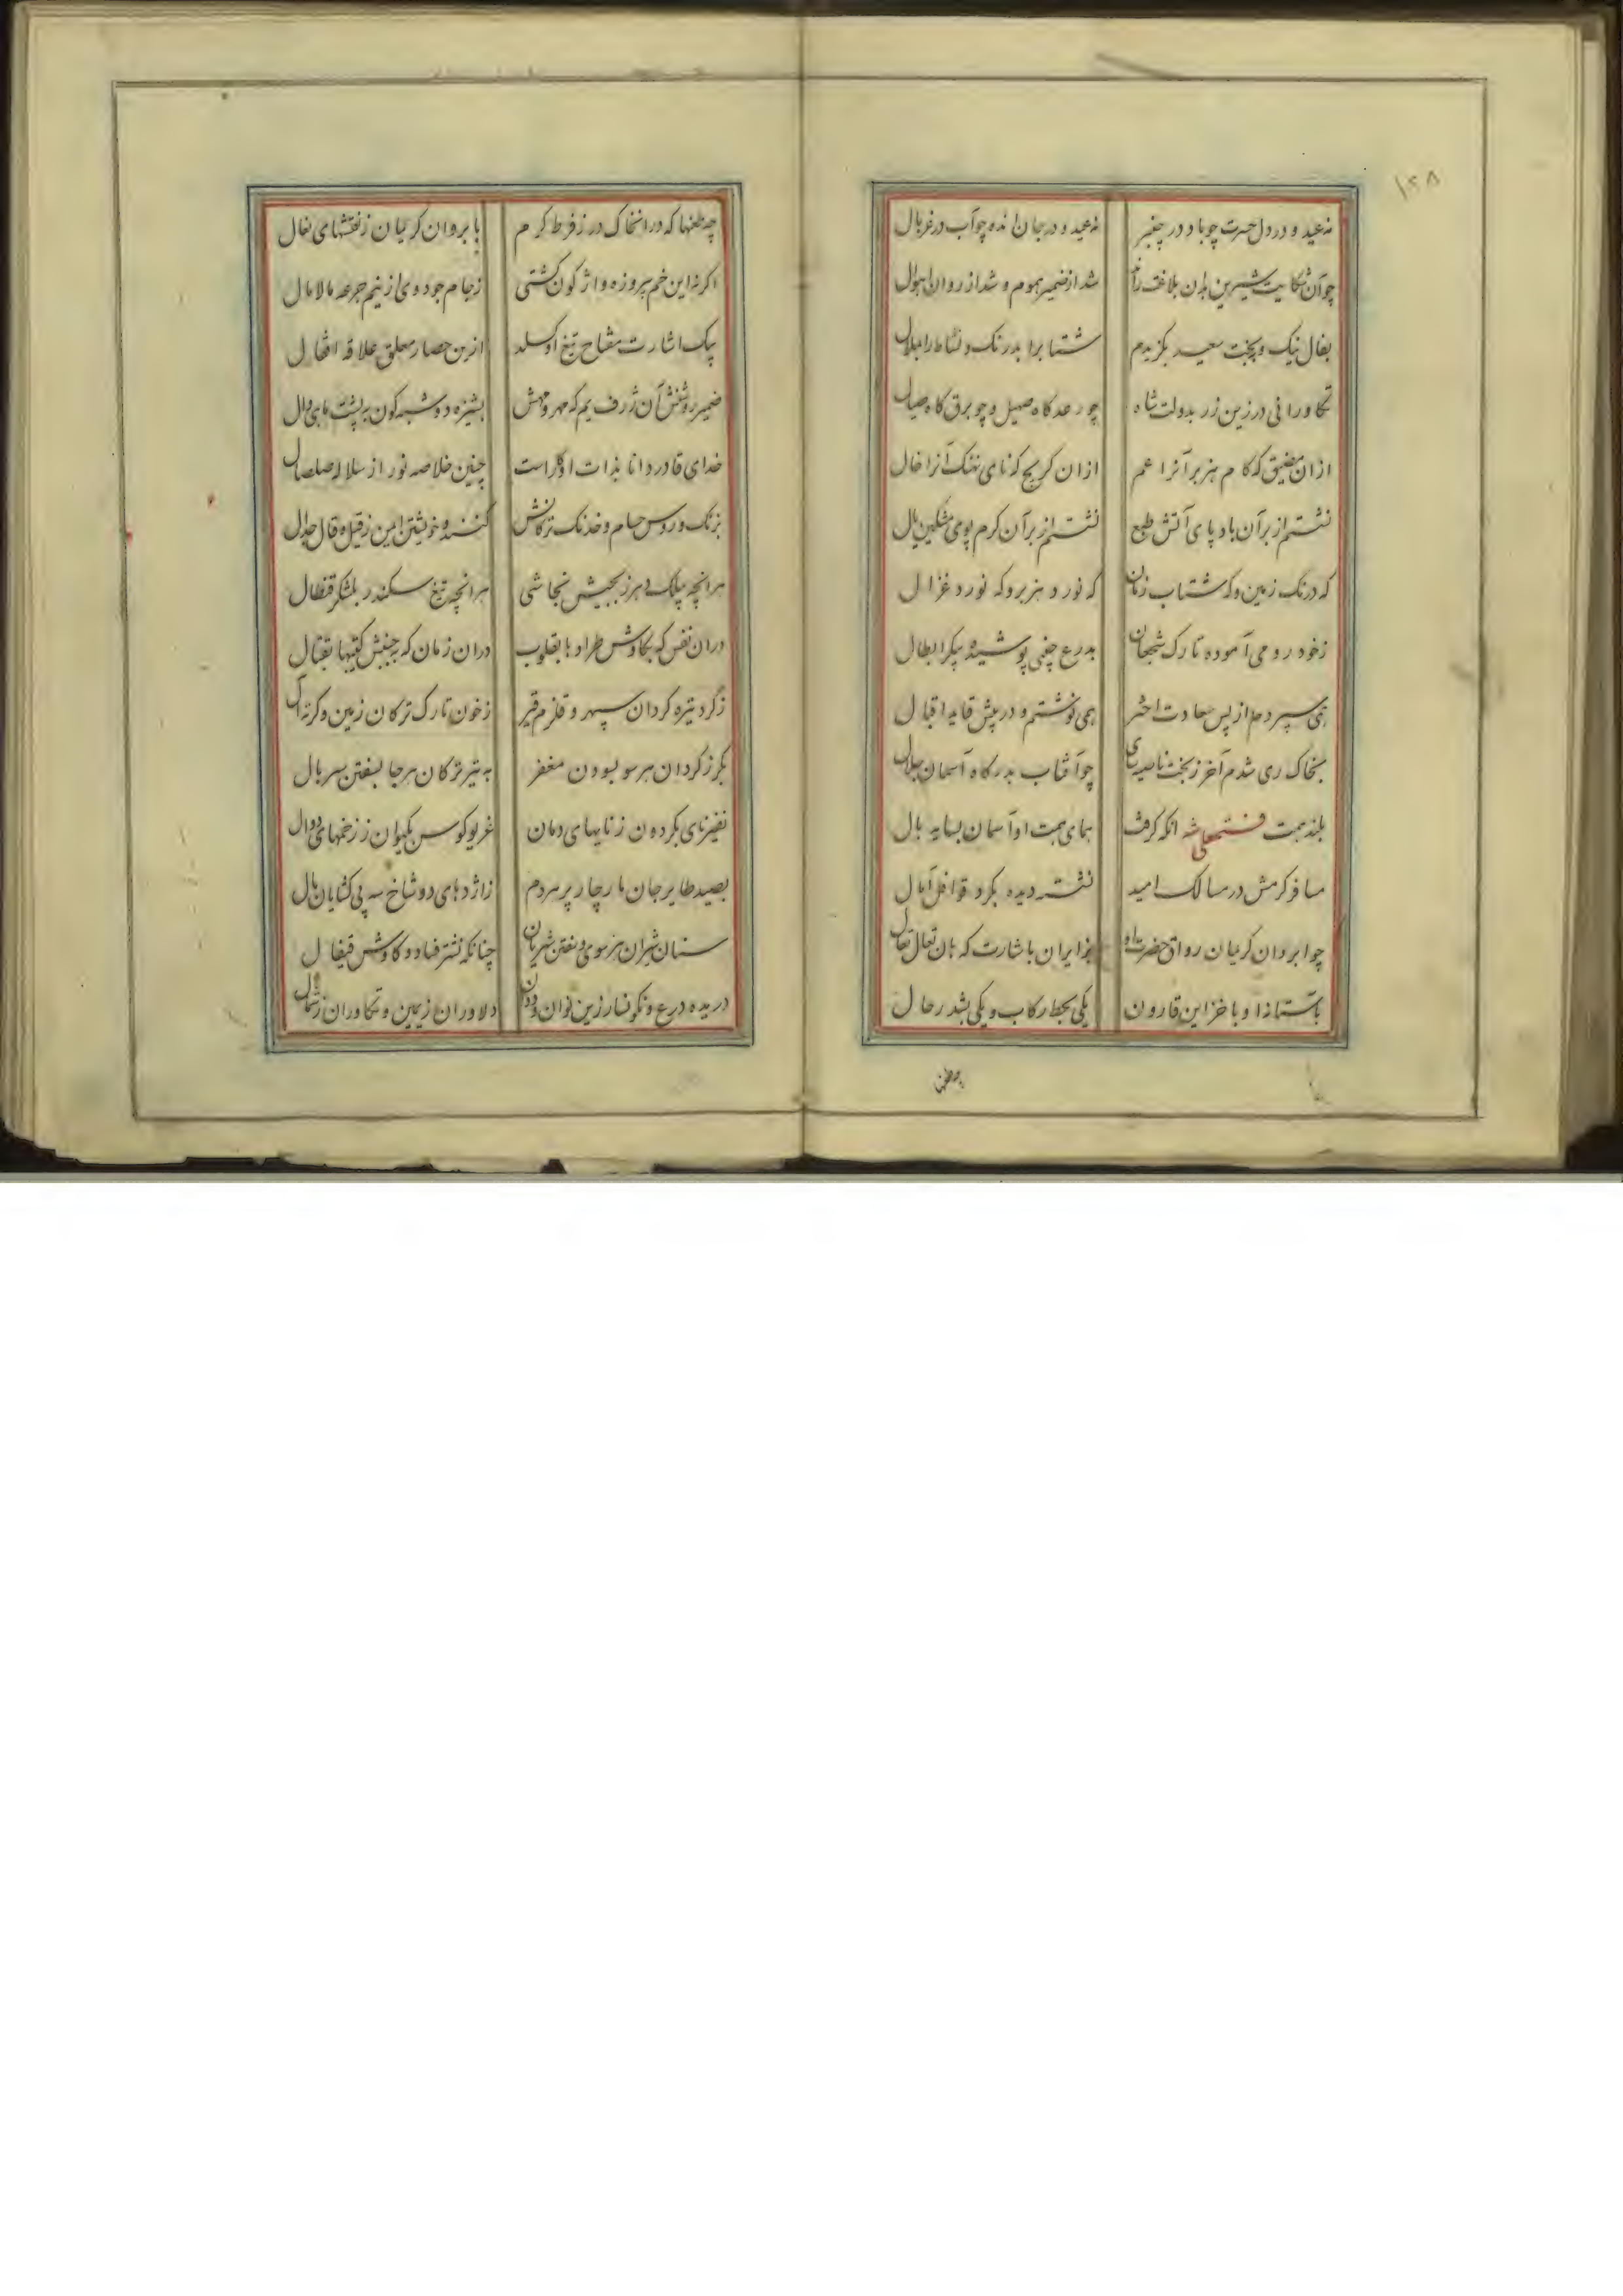 ۱۲۸
نه عید و در دل حسرت چو باد در چنبر نه عید و در جان انده چو آب در غربال
چو آن شکایت شیرین بدان بلاغت راند شد از ضمیر هموم و شد از روان اهوال
بفال نیک و ببخت سعید بگزیدم شتاب را بدرنگ و نشاط را بملال
تکاورانی در زین زر بدولت شاه چو رعد گاه صهیل و چو برق گاه صیال
ازان مضیق که کام هزبر آنرا عم ازان کریج که نای نهنگ آنرا خال
نشستم از بر آن باد پای آتش طبع نشستم از بر آن کرم پوی مشکین یال
که درنگ زمین و که شتاب زمان که نورد هزبر و که نورد غزال
ز خود رومی آموده تارک شجعان بدرع چینی پوشیده پیکر ابطال
همی سپردم از پس سعادت اختر همی نوشتم و در پیش قاید اقبال
بخاک ری شدم آخر ز بخت ناصیه سای چو آفتاب بدرگاه آسمان جلال
بلند همت فتحعلی شه آنکه گرفت همای همت او آسمان بسایه بال
مسافر کرمش در مسالک امید نشسته دیده بگرد قوافل آمال
چو ابروان کریمان رواق حضرت او بزایران باشارت که هان تعال تعال
باستانه او با خزاین قارون یکی بحط رکاب و یکی بشد رحال
چه طعنها
چه طعنها که در انخاک در ز فرط کرم بابروان کریمان ز نقشهای نعال
اگر نه این خم پیروزه واژگون گشتی ز جام جود وی از نیم جرعه مالامال
بیک اشارت مفتاح تیغ او گسلد ازین حصار معلق علاقه اقفال
ضمیر روشنش آن ژرف یم که مهر و مهش پشیزه ده شبه گون به پشت ماهی وال
خدای قادر دانا بذات او آراست چنین خلاصه نور از سلاله صلصال
بزنگ و روس حسام و خدنگ ترکانش کنند و خویشتن ایمن ز قیل و قال جدال
هر انچه پیلک وهرز بجیش نجاشی هر انچه تیغ سکندر بلشکر قنطال
دران نفس که بکاوش طرادها بقلوب دران زمان که بجنبش کتیبها بقتال
ز گرد تیره گردان سپهر و قلزم قیر ز خون تارک ترکان زمین و کرته آل
بگرز گردان هر سو بسودن مغفر به تیر ترکان هر جا بسفتن سربال
نفیر نای بگردون ز نایهای دمان غریو کوس بکیوان ز زخمهای دوال
بصید طایر جان مار چار پر هر دم ز اژدهای دو شاخ سه پی گشایان بال
سنان شیران هر سوی و سفتن شریان چنانکه نشتر فصاد و کاوش قیفال
دریده درع و نگونسار زین نوان و دوان دلاوران ز یمین و تکاوران ز شمال